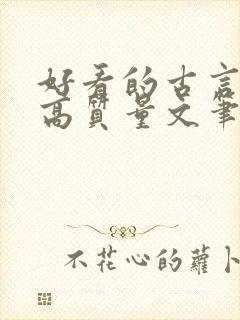 好看的古言
高质量文笔
不花心的萝卜